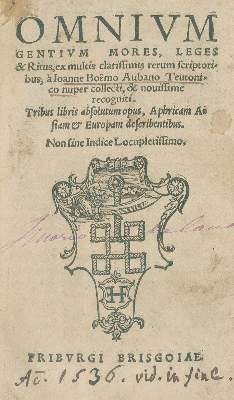 OMNIVM
GENTIVM MORES, LEGES
& Ritus, ex multis clarissimis rerum scriptori-
bus, à Ioanne Boëmo Aubano Teutoni-
co nuper collecti, & nouissime
recogniti.
Tribus libris absolutum opus, Aphricam A-
siam & Europam describentibus.
Non sine Indice Locupletissimo.
FRIBVRGI BRISGOIAE
Aᵒ. 1536. vid. in fine.